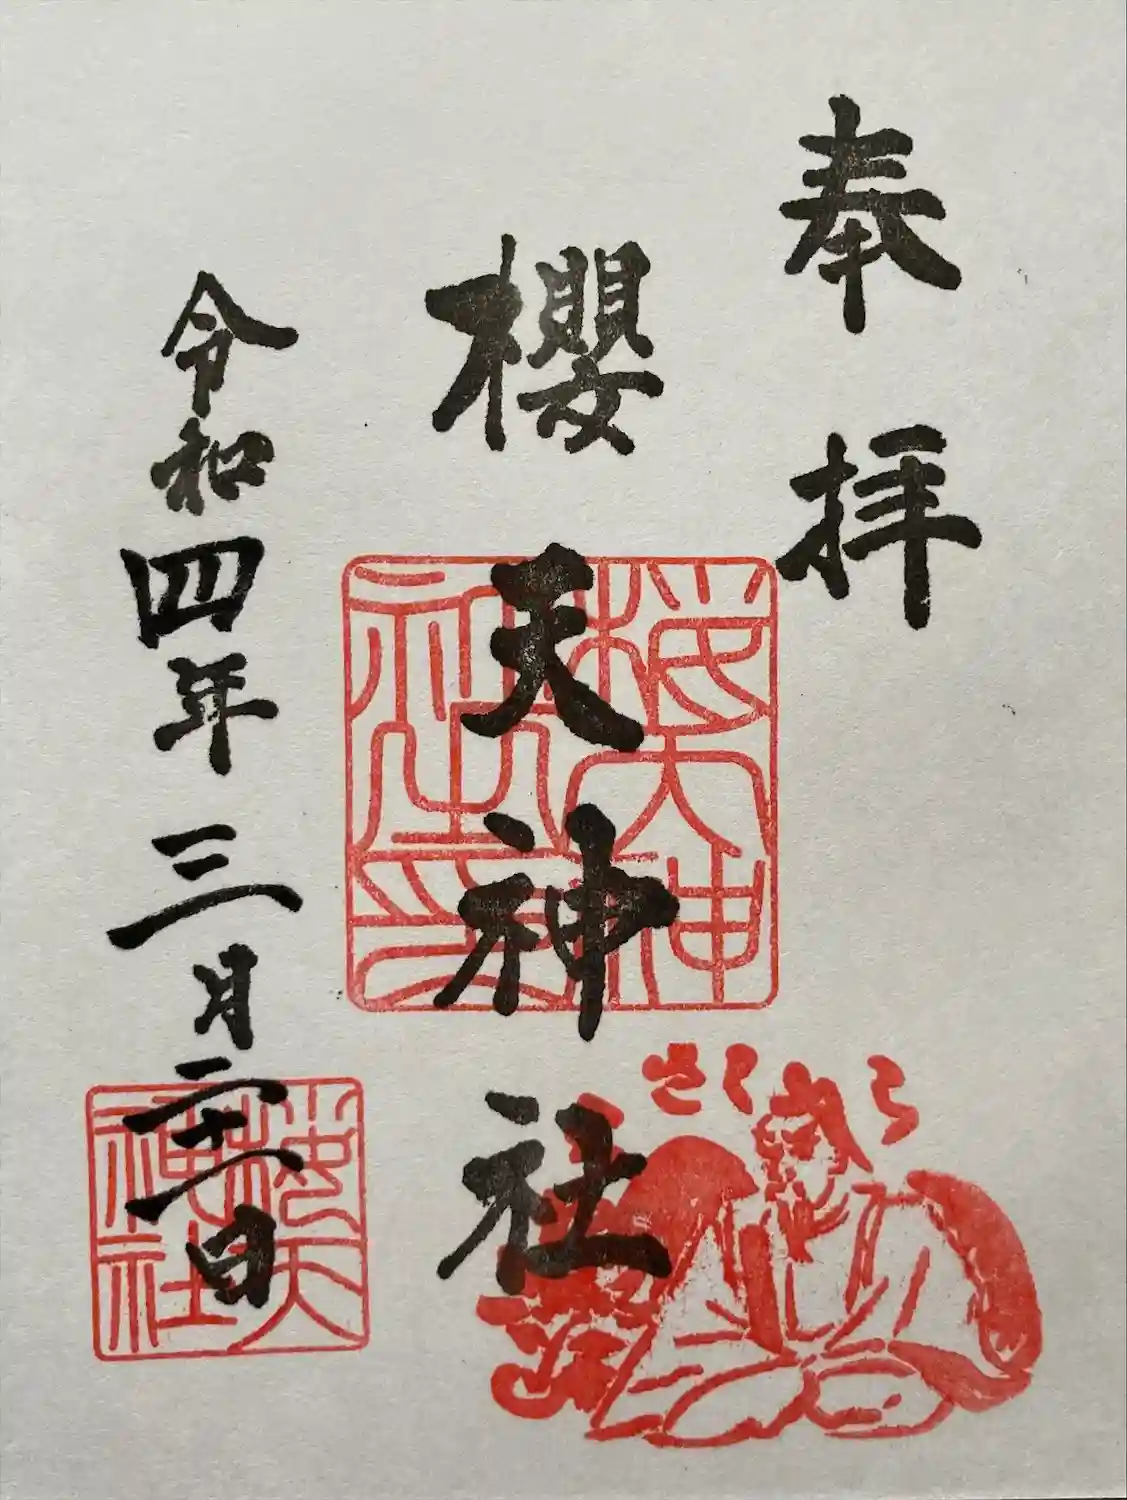 奉拝
櫻天神社
令和四年三月二十一日
桜天神社印
桜天神社
さくら